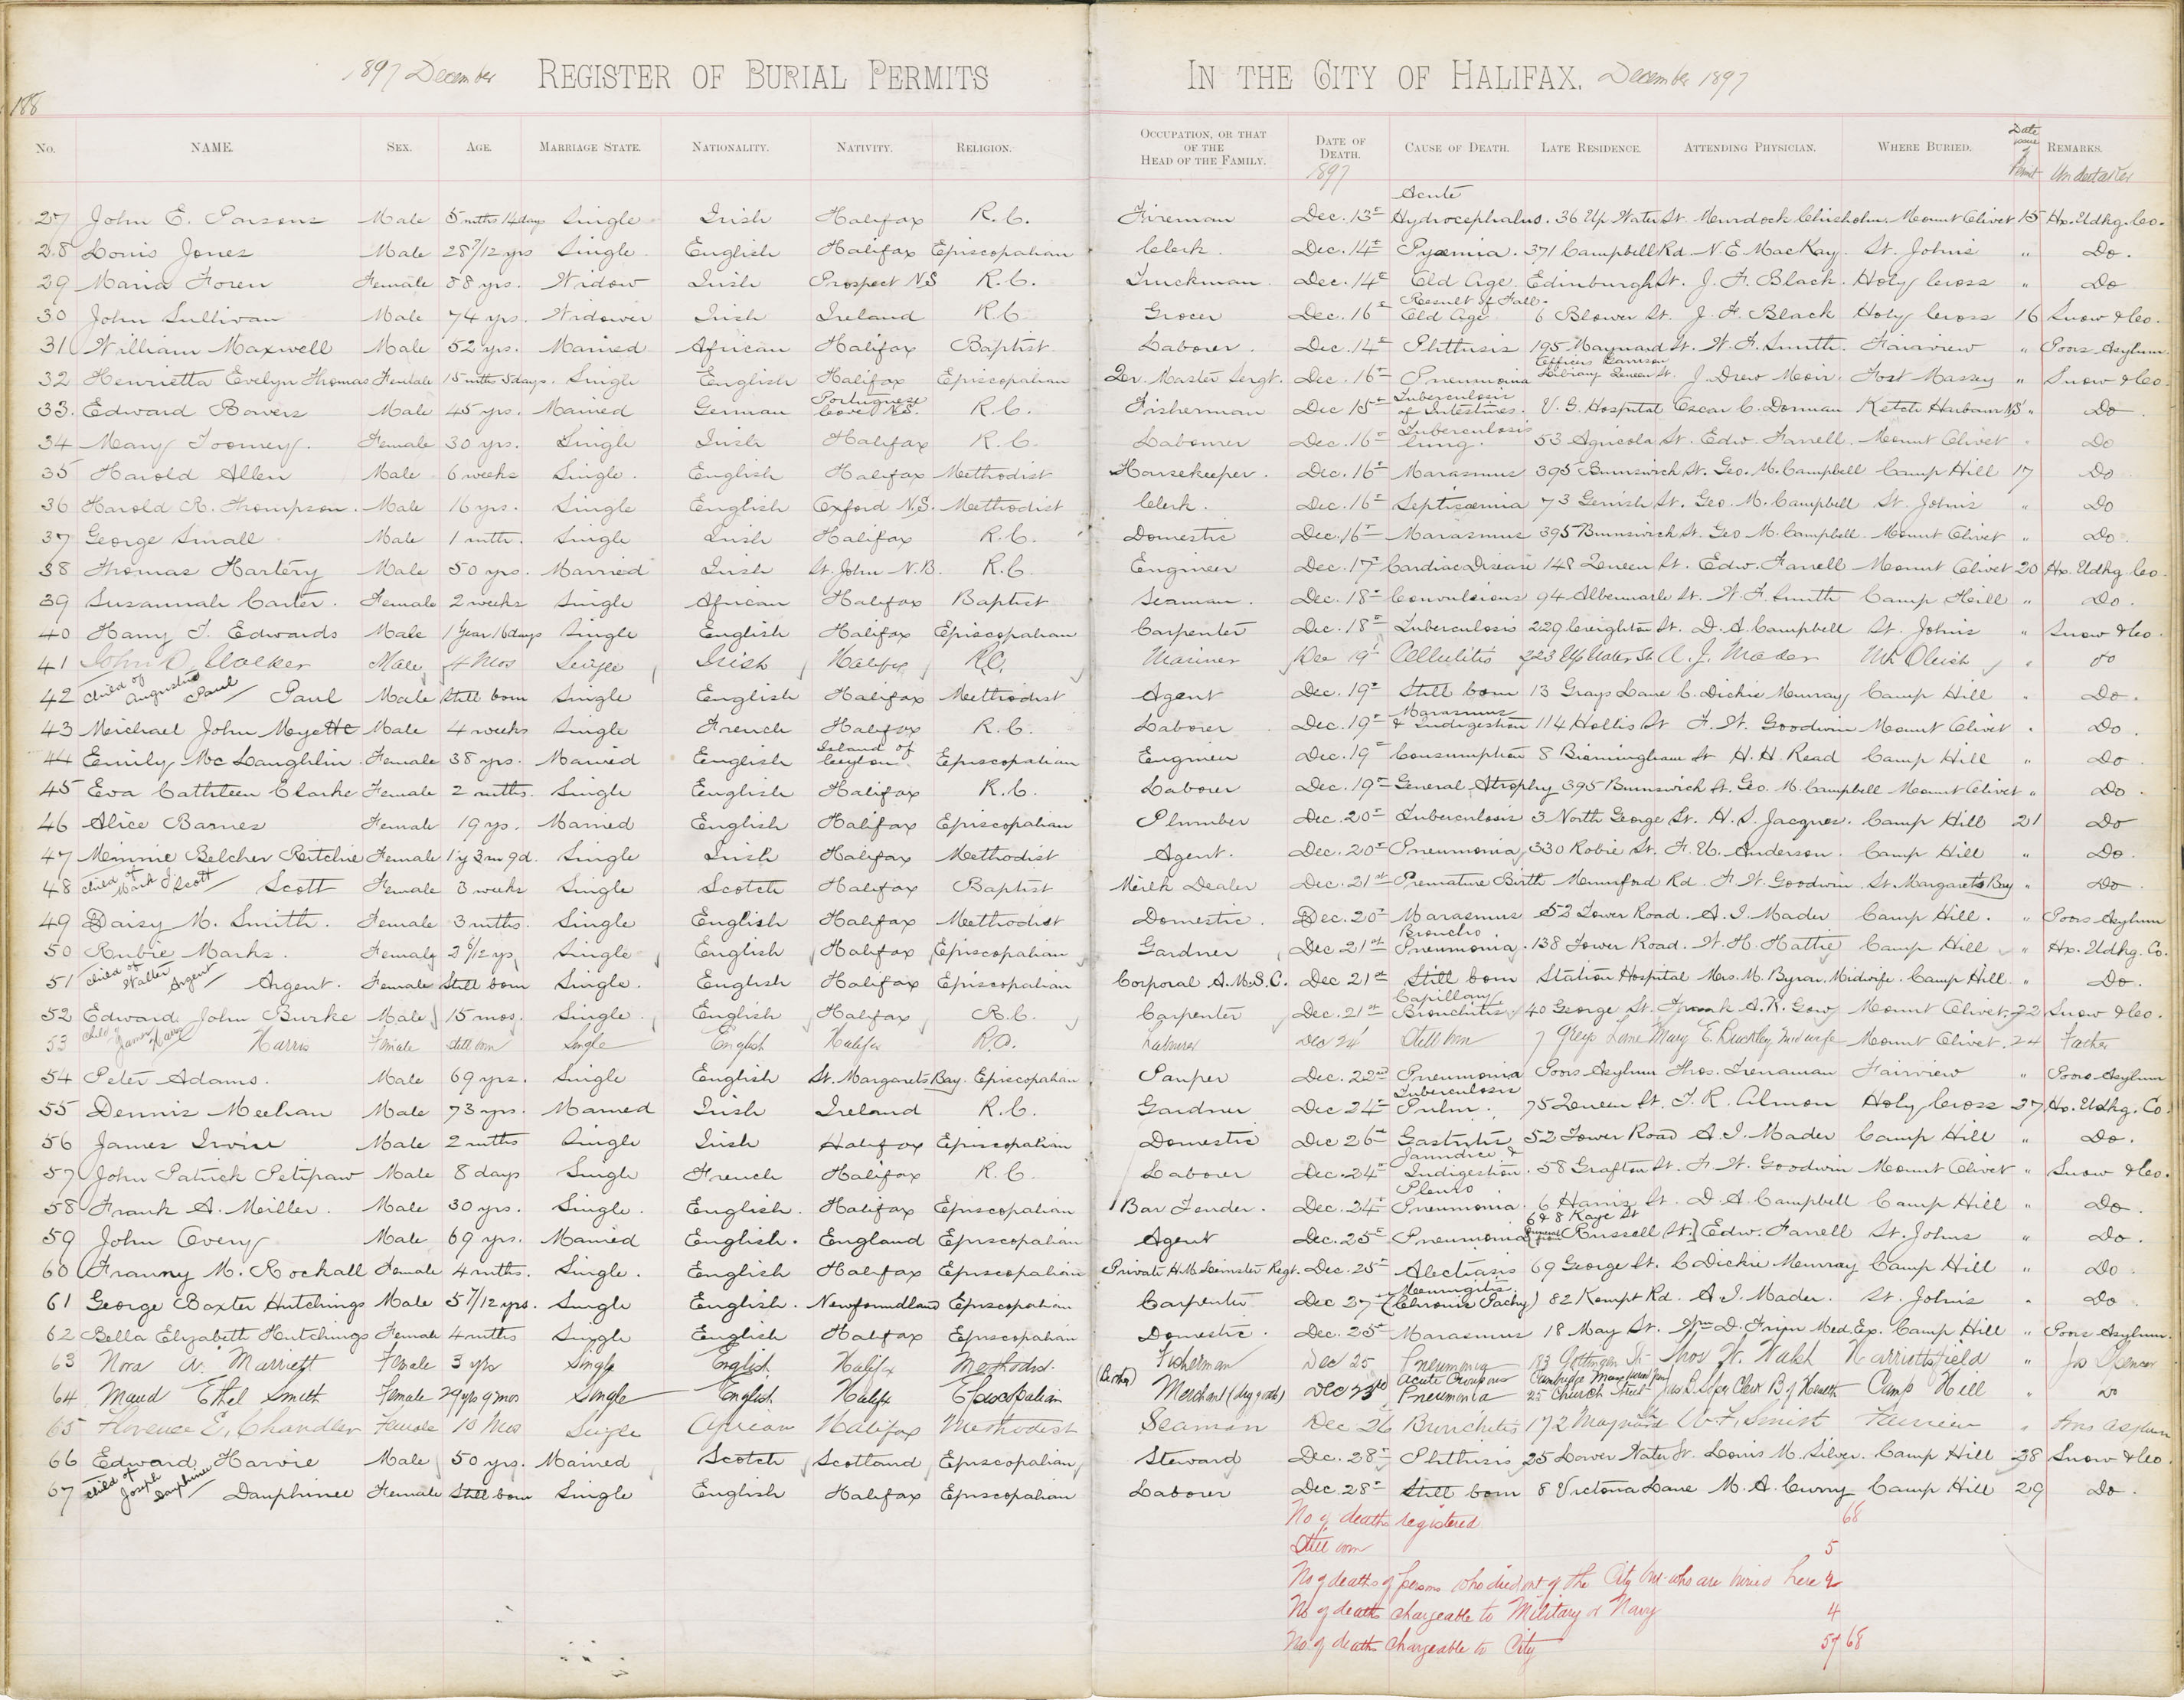 188
1897 December REGISTER OF BURIAL PERMITS IN THE CITY OF HALIFAX. December 1897
No. NAME. SEX. AGE. MARRIAGE STATE. NATIONALITY. NATIVITY. RELIGION. OCCUPATION, OR THAT OF THE HEAD OF THE FAMILY. DATE OF DEATH. 1897 CAUSE OF DEATH. LATE RESIDENCE. ATTENDING PHYSICIAN. WHERE BURIED. Date of Permit REMARKS. Undertaker
27 John E. Parsons Male 5 mths 14 days Single Irish Halifax R.C. Fireman Dec. 13th Acute Hydrocephalus. 36 Up Water St. Murdock Chisholm. Mount Olivet 15 Hx. Udkg. Co.
28 Louis Jones Male 28 7/12 yrs Single English Halifax Episcopalian Clerk. Dec. 14th Pyæmia. 371 Campbell Rd. N. E. MacKay. St. John's " Do.
29 Maria Foren Female 88 yrs. Widow Irish Prospect N.S R.C. Truckman Dec. 14th Old Age Edinburgh St. J. F. Black. Holy Cross " Do
30 John Sullivan Male 74 yrs. Widower Irish Ireland R.C. Grocer Dec. 16th Result of Fall. Old Age 6 Blower St. J. F. Black Holy Cross 16 Snow & Co.
31 William Maxwell Male 52 yrs. Married African Halifax Baptist Laborer. Dec. 14th Phthisis 195 Maynard St. W. F. Smith. Fairview " Poors Asylum
32 Henrietta Evelyn Thomas Female 15 mths 5 days. Single English Halifax Episcopalian Qr. Master Sergt. Dec. 16th Pneumonia Officers Garrison Library Queen St. J. Drew Moir. Fort Massey " Snow & Co.
33. Edward Bowers Male 45 yrs. Married German Portuguese Cove N.S. R.C. Fisherman Dec 15th Tuberculosis of Intestines. V. G. Hospital Oscar C. Dorman Ketch Harbour N.S " Do.
34 Mary Toomey. Female 30 yrs. Single Irish Halifax R.C. Labourer Dec. 16th Tuberculosis Lung. 53 Agricola St. Edw. Farrell. Mount Olivet " Do
35 Harold Allen Male 6 weeks Single. English Halifax Methodist Housekeeper. Dec. 16th Marasmus 395 Brunswick St. Geo. M. Campbell Camp Hill 17 Do
36 Harold R. Thompson. Male 16 yrs. Single English Oxford N.S. Methodist Clerk. Dec. 16th Septicæmia 73 Gerrish St. Geo. M. Campbell St. John's " Do
37 George Small Male 1 mth. Single Irish Halifax R.C. Domestic Dec. 16th Marasmus 395 Brunswick St. Geo M. Campbell. Mount Olivet " Do.
38 Thomas Hartery Male 50 yrs. Married Irish St. John N.B. R.C. Engineer Dec. 17th Cardiac Disease 148 Queen St. Edw. Farrell Mount Olivet 20 Hx. Udkg. Co.
39 Susannah Carter. Female 2 weeks Single African Halifax Baptist Seaman. Dec. 18th Convulsions 94 Albermarle St. W. F. Smith Camp Hill " Do.
40 Harry T. Edwards Male 1 Year 16 days Single English Halifax Episcopalian Carpenter Dec. 18th Tuberculosis 229 Creighton St. D. A. Campbell St. John's " Snow & Co.
41 John D Walker Male 4 Mos Single Irish Halifax R.C. Mariner Dec 19th Cellulitis 223 Up Water St A. J. Mader Mt Olivet " do
42 child of Augustus Paul Paul Male Still born Single English Halifax Methodist Agent Dec. 19th Still born 13 Grays Lane C. Dickie Murray Camp Hill " Do.
43 Michael John Myette Male 4 weeks Single French Halifax R.C. Laborer Dec. 19th Marasmus & Indigestion 114 Hollis St F. W. Goodwin Mount Olivet " Do.
44 Emily McLaughlin. Female 38 yrs. Married English Island of Ceylon Episcopalian Engineer Dec. 19th Consumption 8 Birmingham St H. H. Read Camp Hill " Do
45 Eva Cathleen Clarke Female 2 mths. Single English Halifax R.C. Laborer Dec. 19th General Atrophy 395 Brunswick St. Geo. M. Campbell Mount Olivet " Do.
46 Alice Barnes Female 19 ys. Married English Halifax Episcopalian Plumber Dec. 20th Tuberculosis 3 North George St. H. S. Jacques. Camp Hill 21 Do
47 Minnie Belcher Ritchie Female 1 y 3 m 9 d. Single Irish Halifax Methodist Agent. Dec. 20th Pneumonia 330 Robie St. F. U. Anderson. Camp Hill " Do.
48 child of Mark J. Scott Scott Female 3 weeks Single Scotch Halifax Baptist Milk Dealer Dec. 21st Premature Birth Mumford Rd. F. W. Goodwin St. Margarets Bay " Do
49 Daisy M. Smith. Female 3 mths. Single English Halifax Methodist Domestic. Dec. 20th Marasmus 52 Tower Road. A. I. Mader Camp Hill. " Poors Asylum
50 Rubie Marks. Female 2 6/12 ys Single English Halifax Episcopalian Gardner Dec 21st Broncho Pneumonia. 138 Tower Road. W. H. Hattie Camp Hill " Hx. Udkg. Co.
51 child of Walter Argent Argent. Female Still born Single. English Halifax Episcopalian Corporal A.M.S.C. Dec 21st Still born Station Hospital Mrs. M. Byran, Midwife. Camp Hill. " Do.
52 Edward John Burke Male 15 mos. Single. English Halifax R.C. Carpenter Dec. 21st Capillary Bronchitis 40 George St. Frank A. R. Gow Mount Olivet. 22 Snow & Co.
53 child of James Harris Harris Female still born Single English Halifax R.C. Labourer Dec 24 Still born 7 Greys Lane Mary E. Buckley Midwife Mount Olivet. 24 Father
54 Peter Adams. Male 69 yrs. Single English St. Margarets Bay. Episcopalian Pauper Dec. 22nd Pneumonia Poors Asylum Thos. Trenaman Fairview " Poors Asylum
55 Dennis Meehan Male 73 yrs. Married Irish Ireland R.C. Gardner Dec 24th Tuberculosis Pulm. 75 Queen St. T. R. Almon Holy Cross 27 Hx. Udkg. Co.
56 James Irvine Male 2 mths Single Irish Halifax Episcopalian Domestic Dec 26th Gastritis 52 Tower Road A. I. Mader Camp Hill " Do.
57 John Patrick Petipaw Male 8 days Single French Halifax R.C. Laborer Dec. 24th Jaundice & Indigestion. 58 Grafton St. F. W. Goodwin Mount Olivet " Snow & Co.
58 Frank A. Miller. Male 30 yrs. Single. English. Halifax Episcopalian Bar Tender. Dec. 24th Pleuro Pneumonia. 6 Harris St. D. A. Campbell Camp Hill " Do.
59 John Overy Male 69 yrs. Married English. England Episcopalian Agent Dec. 25th Pneumonia 6 & 8 Kaye St Russell St. Edw. Farrell St. Johns " Do.
60 Franny M. Rockall Female 4 mths. Single. English Halifax Episcopalian Private H.M. Leinster Regt. Dec. 25th Alectiasis 69 George St. C Dickie Murray Camp Hill " Do.
61 George Baxter Hutchings Male 5 7/12 yrs. Single English. Newfoundland Episcopalian Carpenter Dec 27th Meningitis (Chronic Pachy) 82 Kempt Rd. A. I. Mader. St. John's " Do
62 Bella Elizabeth Hutchings Female 4 mths Single English Halifax Episcopalian Domestic. Dec. 25th Marasmus 18 May St. Wm D. Finn Med. Ex. Camp Hill " Poors Asylum.
63 Nora A. Marriott Female 3 yrs Single English Halifax Methodist. Fisherman Dec 25 Pneumonia 183 Gottingen St Thos W. Walsh Harriottsfield " Jas Spencer
64 Maud Ethel Smith Female 29 yrs 9 mos Single English Halifax Episcopalian Merchant (dry goods) Dec 23rd Acute Croupous Pneumonia 25 Church Street Camp Hill " do
65 Florence E. Chandler Female 10 Mos Single African Halifax Methodist Seaman Dec 26 Bronchitis 172 Maynard St W. F. Smith Fairview " Poors Asylum
66 Edward Harvie Male 50 yrs. Married Scotch Scotland Episcopalian Steward Dec. 28th Phthisis 25 Lower Water St. Louis M. Silver. Camp Hill 28 Snow & Co.
67 child of Joseph Dauphinee Dauphinee Female Still born Single English Halifax Episcopalian Laborer Dec. 28th Still born 8 Victoria Lane M. A. Curry Camp Hill 29 Do.
No of deaths registered 68
Still born 5
No of deaths of persons who died out of the City but who are buried here 2
No of deaths chargeable to Military or Navy 4
No. of deaths chargeable to City 57 68